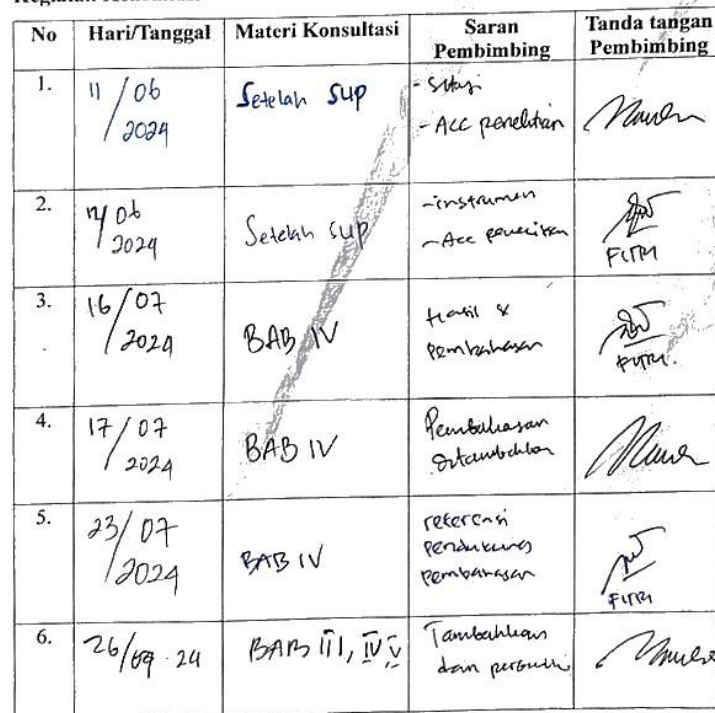 No Hari/Tanggal Materi Konsultasi Saran Pembimbing Tanda tangan Pembimbing
1. 11/06 2024 Setelah SUP
- ACC penelitian
2. 06 2024 Setelah SUP
- instrumen
- Acc penelitian
FITRI
3. 16/07 2024 BAB IV
Hasil &
pembahasan
FITRI
4. 17/07 2024 BAB IV
Pembahasan
ditambahkan
5. 23/07 2024 BAB IV
referensi
pendukung
pembahasan
FITRI
6. 26/ 24 BAB III, IV V
Tambahkan
dan